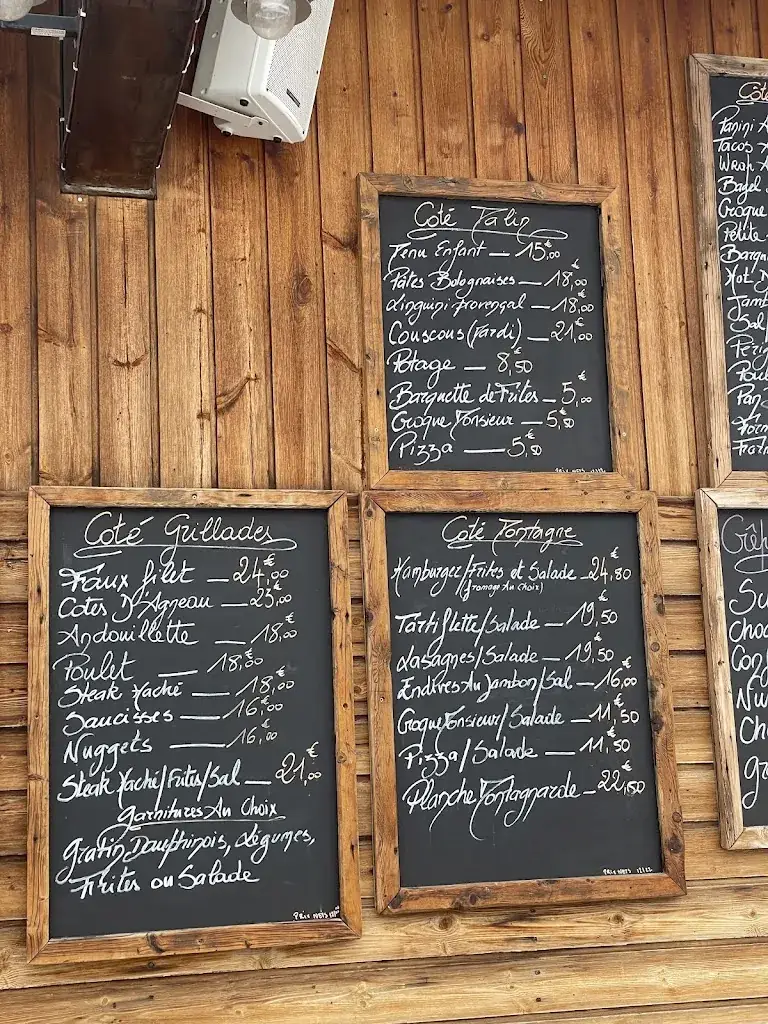 Coté Malin
Menu Enfant — 15,00€
Pâtes Bolognaises — 18,00€
Linguini provençal — 18,00€
Couscous (Mardi) — 21,00€
Potage — 8,50€
Barquette de Frites — 5,00€
Croque Monsieur — 5,50€
Pizza — 5,50€
PRIX NETS 12/22
Coté Grillades
Faux filet — 24,00€
Cotes D'Agneau — 23,00€
Andouillette — 18,00€
Poulet — 18,00€
Steak Haché — 18,00€
Saucisses — 16,00€
Nuggets — 16,00€
Steak Haché/Frites/Sal — 21,00€
Garnitures Au Choix
Gratin Dauphinois, Légumes,
Frites ou Salade
PRIX NETS
Coté Montagne
Hamburger/Frites et Salade — 24,80€
(Fromage Au Choix)
Tartiflette/Salade — 19,50€
Lasagnes/Salade — 19,50€
Endives Au Jambon/Sal — 16,00€
Croque Monsieur/Salade — 11,50€
Pizza/Salade — 11,50€
Planche Montagnarde — 22,50€
PRIX NETS 12/22
Coté
Panini A
Tacos A
Wrap A
Bagel
Croque
Petite
Barqu
Hot D
Jamb
Sal
Poul
Pan
Form
From
Crêp
Su
Choc
Conf
Nu
Ch
Gr